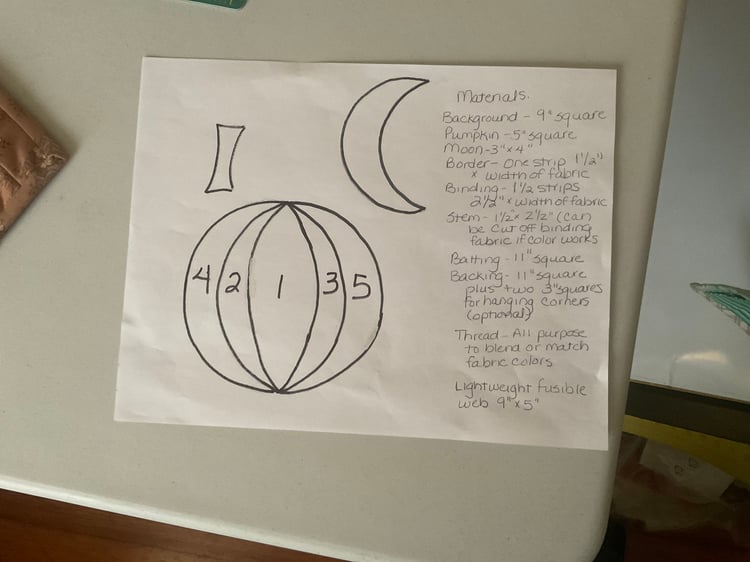 Materials.
Background - 9" square
Pumpkin - 5" square
Moon - 3" x 4"
Border - One strip 1 1/2"
x width of fabric
Binding - 1 1/2 strips
2 1/2" x width of fabric
Stem - 1 1/2" x 2 1/2" (can
be cut off binding
fabric if color works
Batting - 11" square
Backing - 11" square
plus two 3" squares
for hanging corners
(optional)
Thread - All purpose
to blend or match
fabric colors
Lightweight fusible
web 9" x 5"
4 2 1 3 5